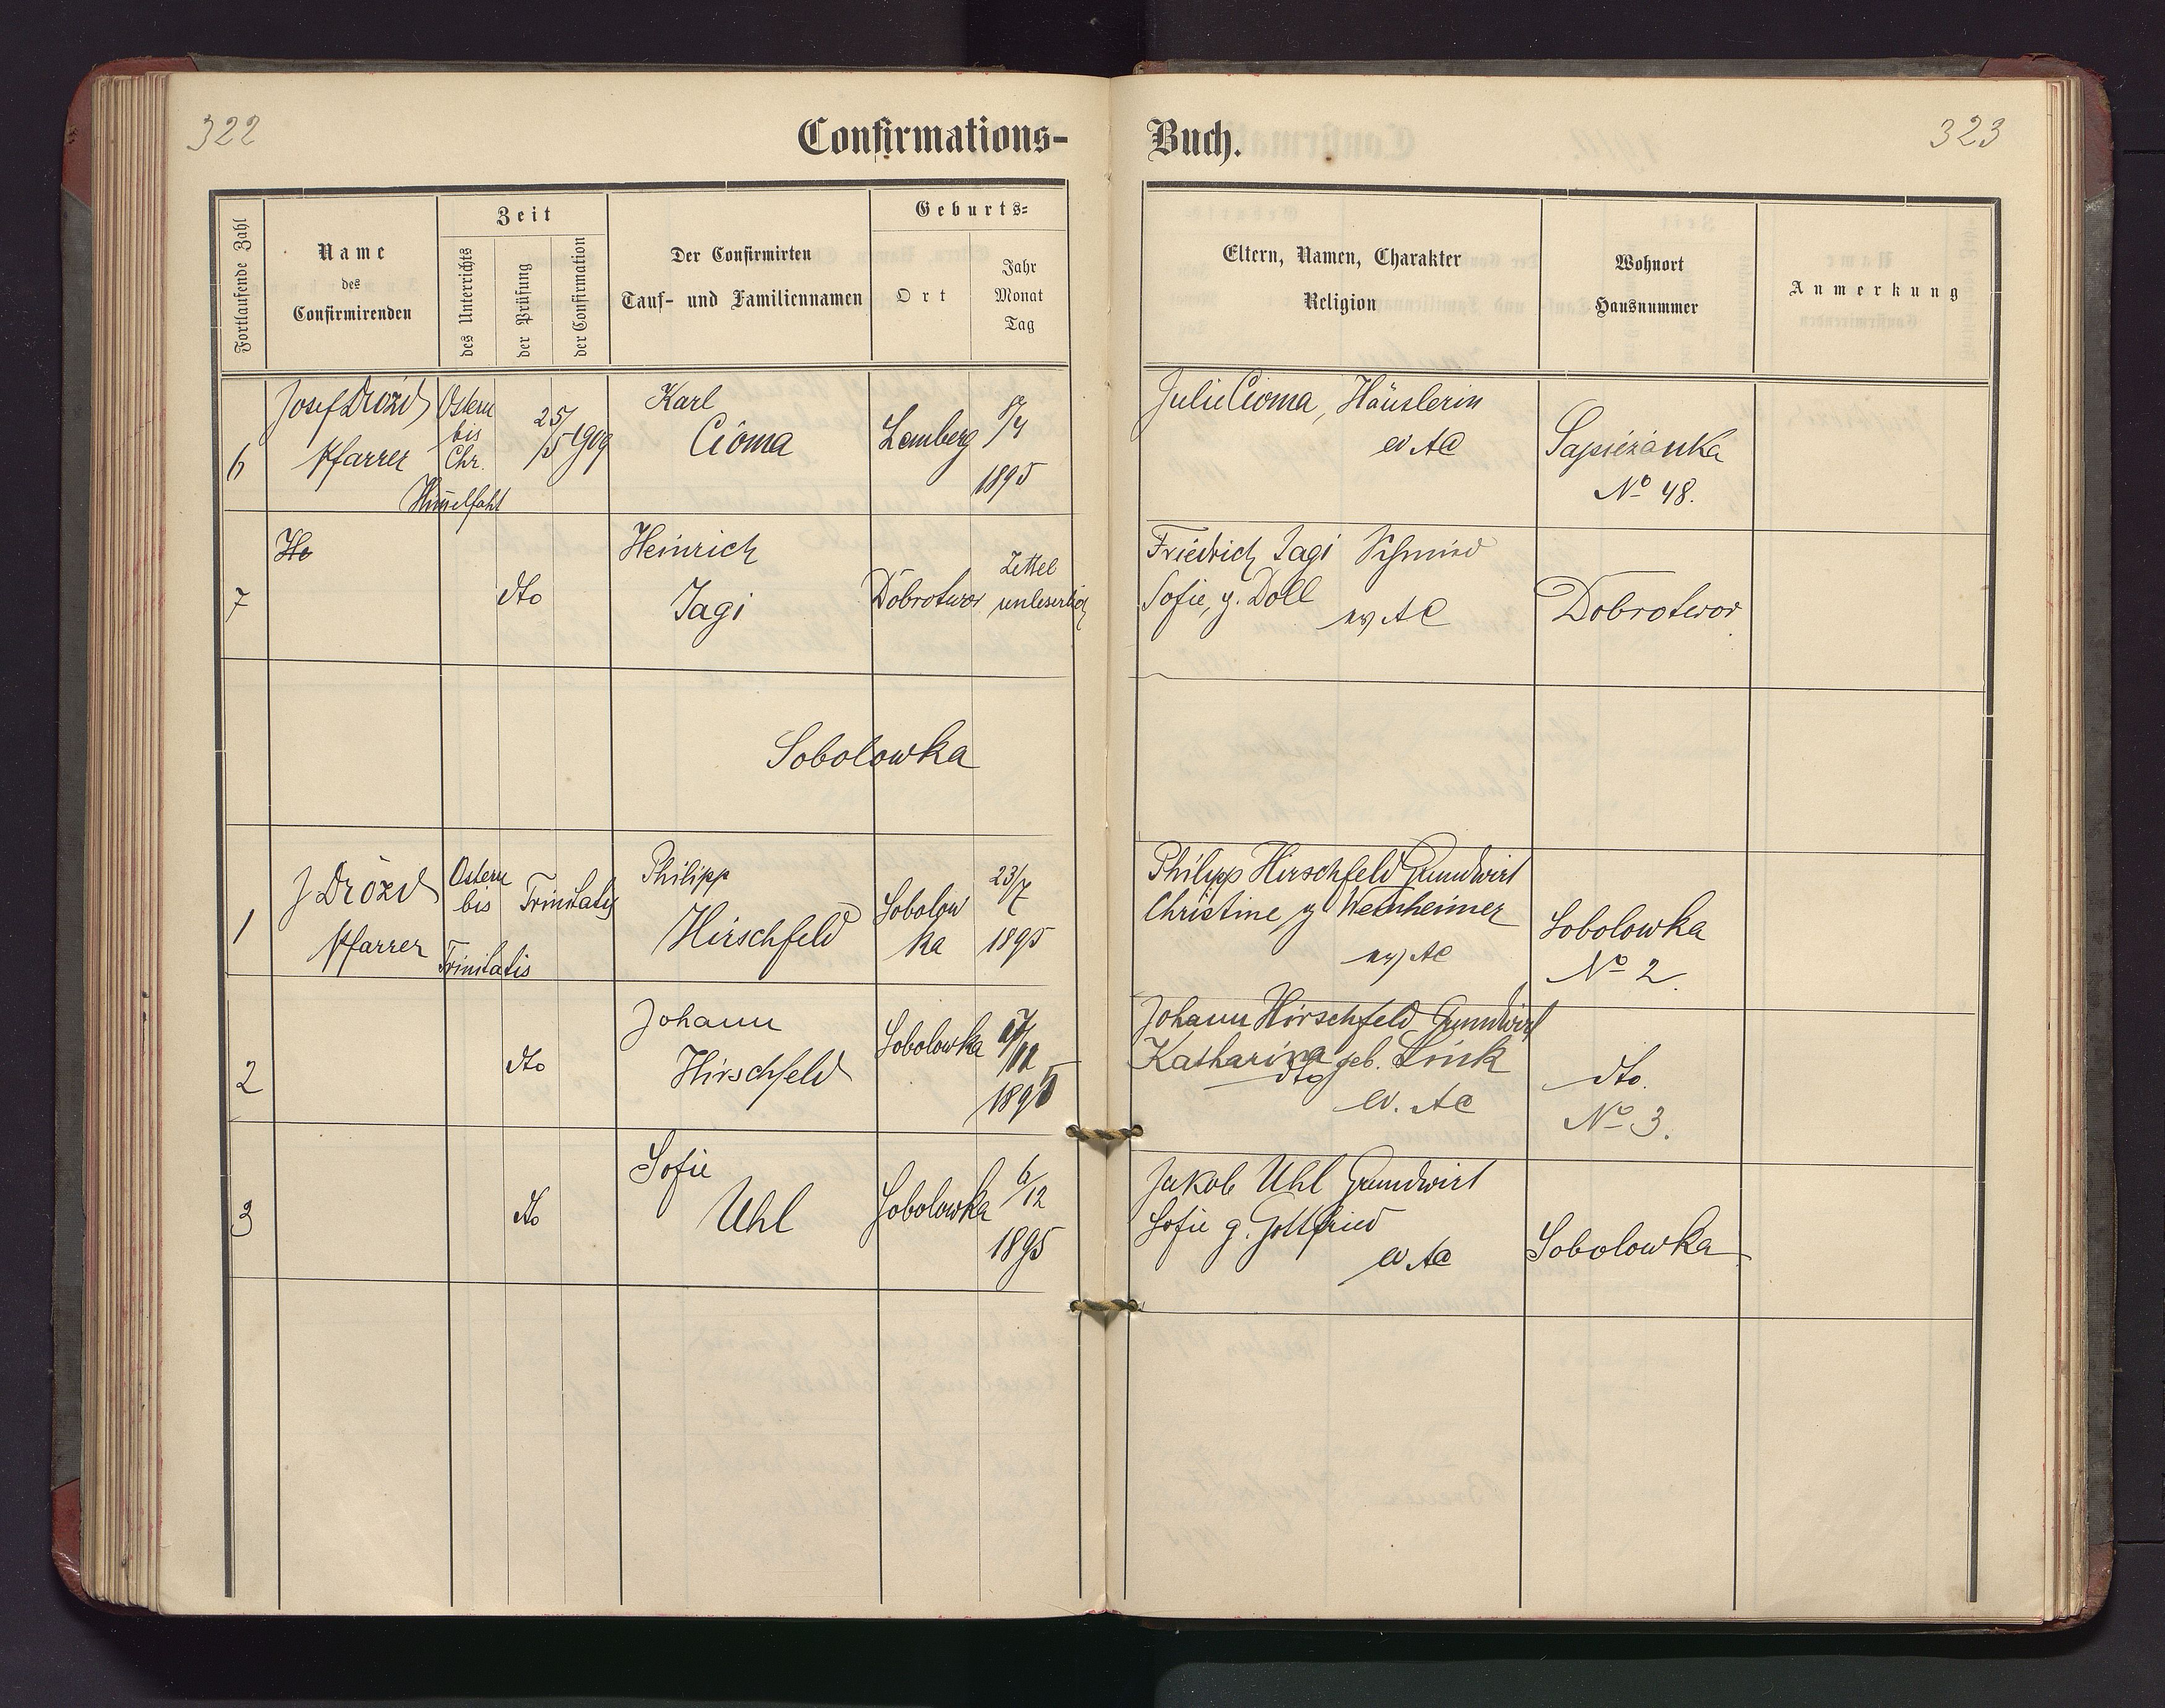 322
Confirmations-
Buch.
323
Fortlaufende Zahl
Name
des
Confirmirenden
Zeit
des Unterrichts
der Prüfung
der Confirmation
Der Confirmirten
Tauf- und Familiennamen
Geburts-
Ort
Jahr
Monat
Tag
Eltern, Namen, Charakter
Religion
Wohnort
Hausnummer
Anmerkung
6
Josef Drózd
Pfarrer
Ostern
bis
Chr.
Himelfaht
25/5 1909
Karl
Cioma
Lemberg
1895
Julie Cioma, Häuslerin
ev AC
Sapiezanka
No 48.
7
dto
Heinrich
Jagi
Dobrotwor
Zettel
unleserlich
Friedrich Jagi Schmied
Sofie, g. Doll
ev AC
Dobrotwor
Sobolowka
1
J Drózd
Pfarrer
Ostern
bis
Trinitatis
Trinitatis
Philipp
Hirschfeld
Sobolow
ka
23/7
1895
Philipp Hirschfeld Grundwirt
Christine g Weinheimer
ev AC
Sobolowka
No 2.
2
dto
Johann
Hirschfeld
Sobolowka
Johann Hirschfeld Grundwirt
Katharina geb. Link
dto
ev. AC
dto.
No 3.
3
dto
Sofie
Uhl
Sobolowka
6/12
1895
Jakob Uhl Grundwirt
Sofie g. Gottfried
ev AC
Sobolowka